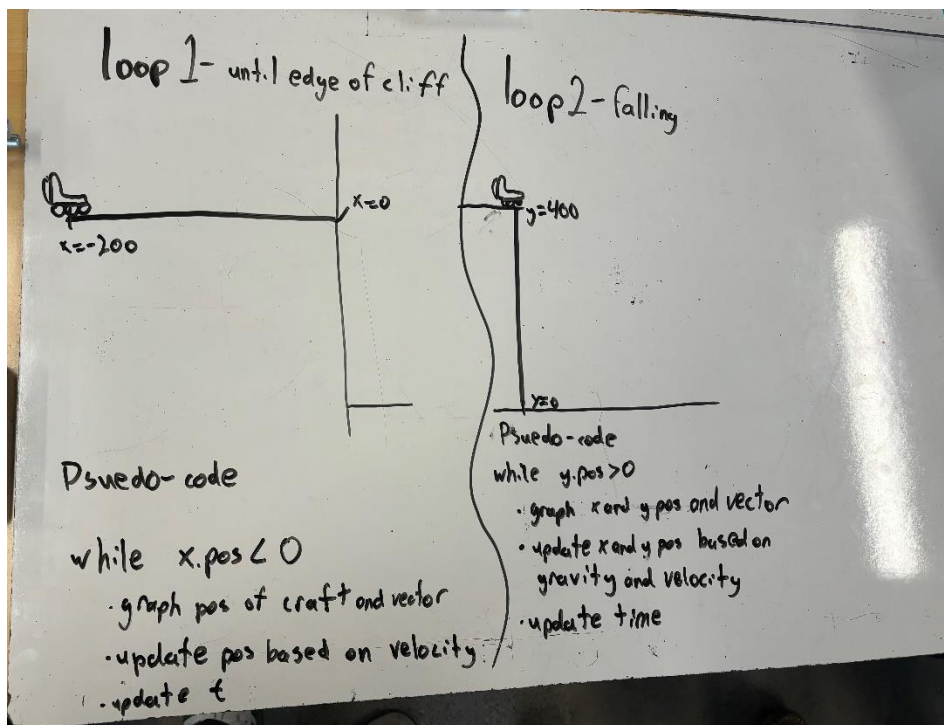 loop 1- until edge of cliff
x=0
x=-200
Psuedo-code
while x.pos < 0
· graph pos of craft and vector
· update pos based on velocity
· update t
loop 2 - falling
y=400
y=0
Psuedo-code
while y.pos>0
· graph x and y pos and vector
· update x and y pos based on
gravity and velocity
· update time